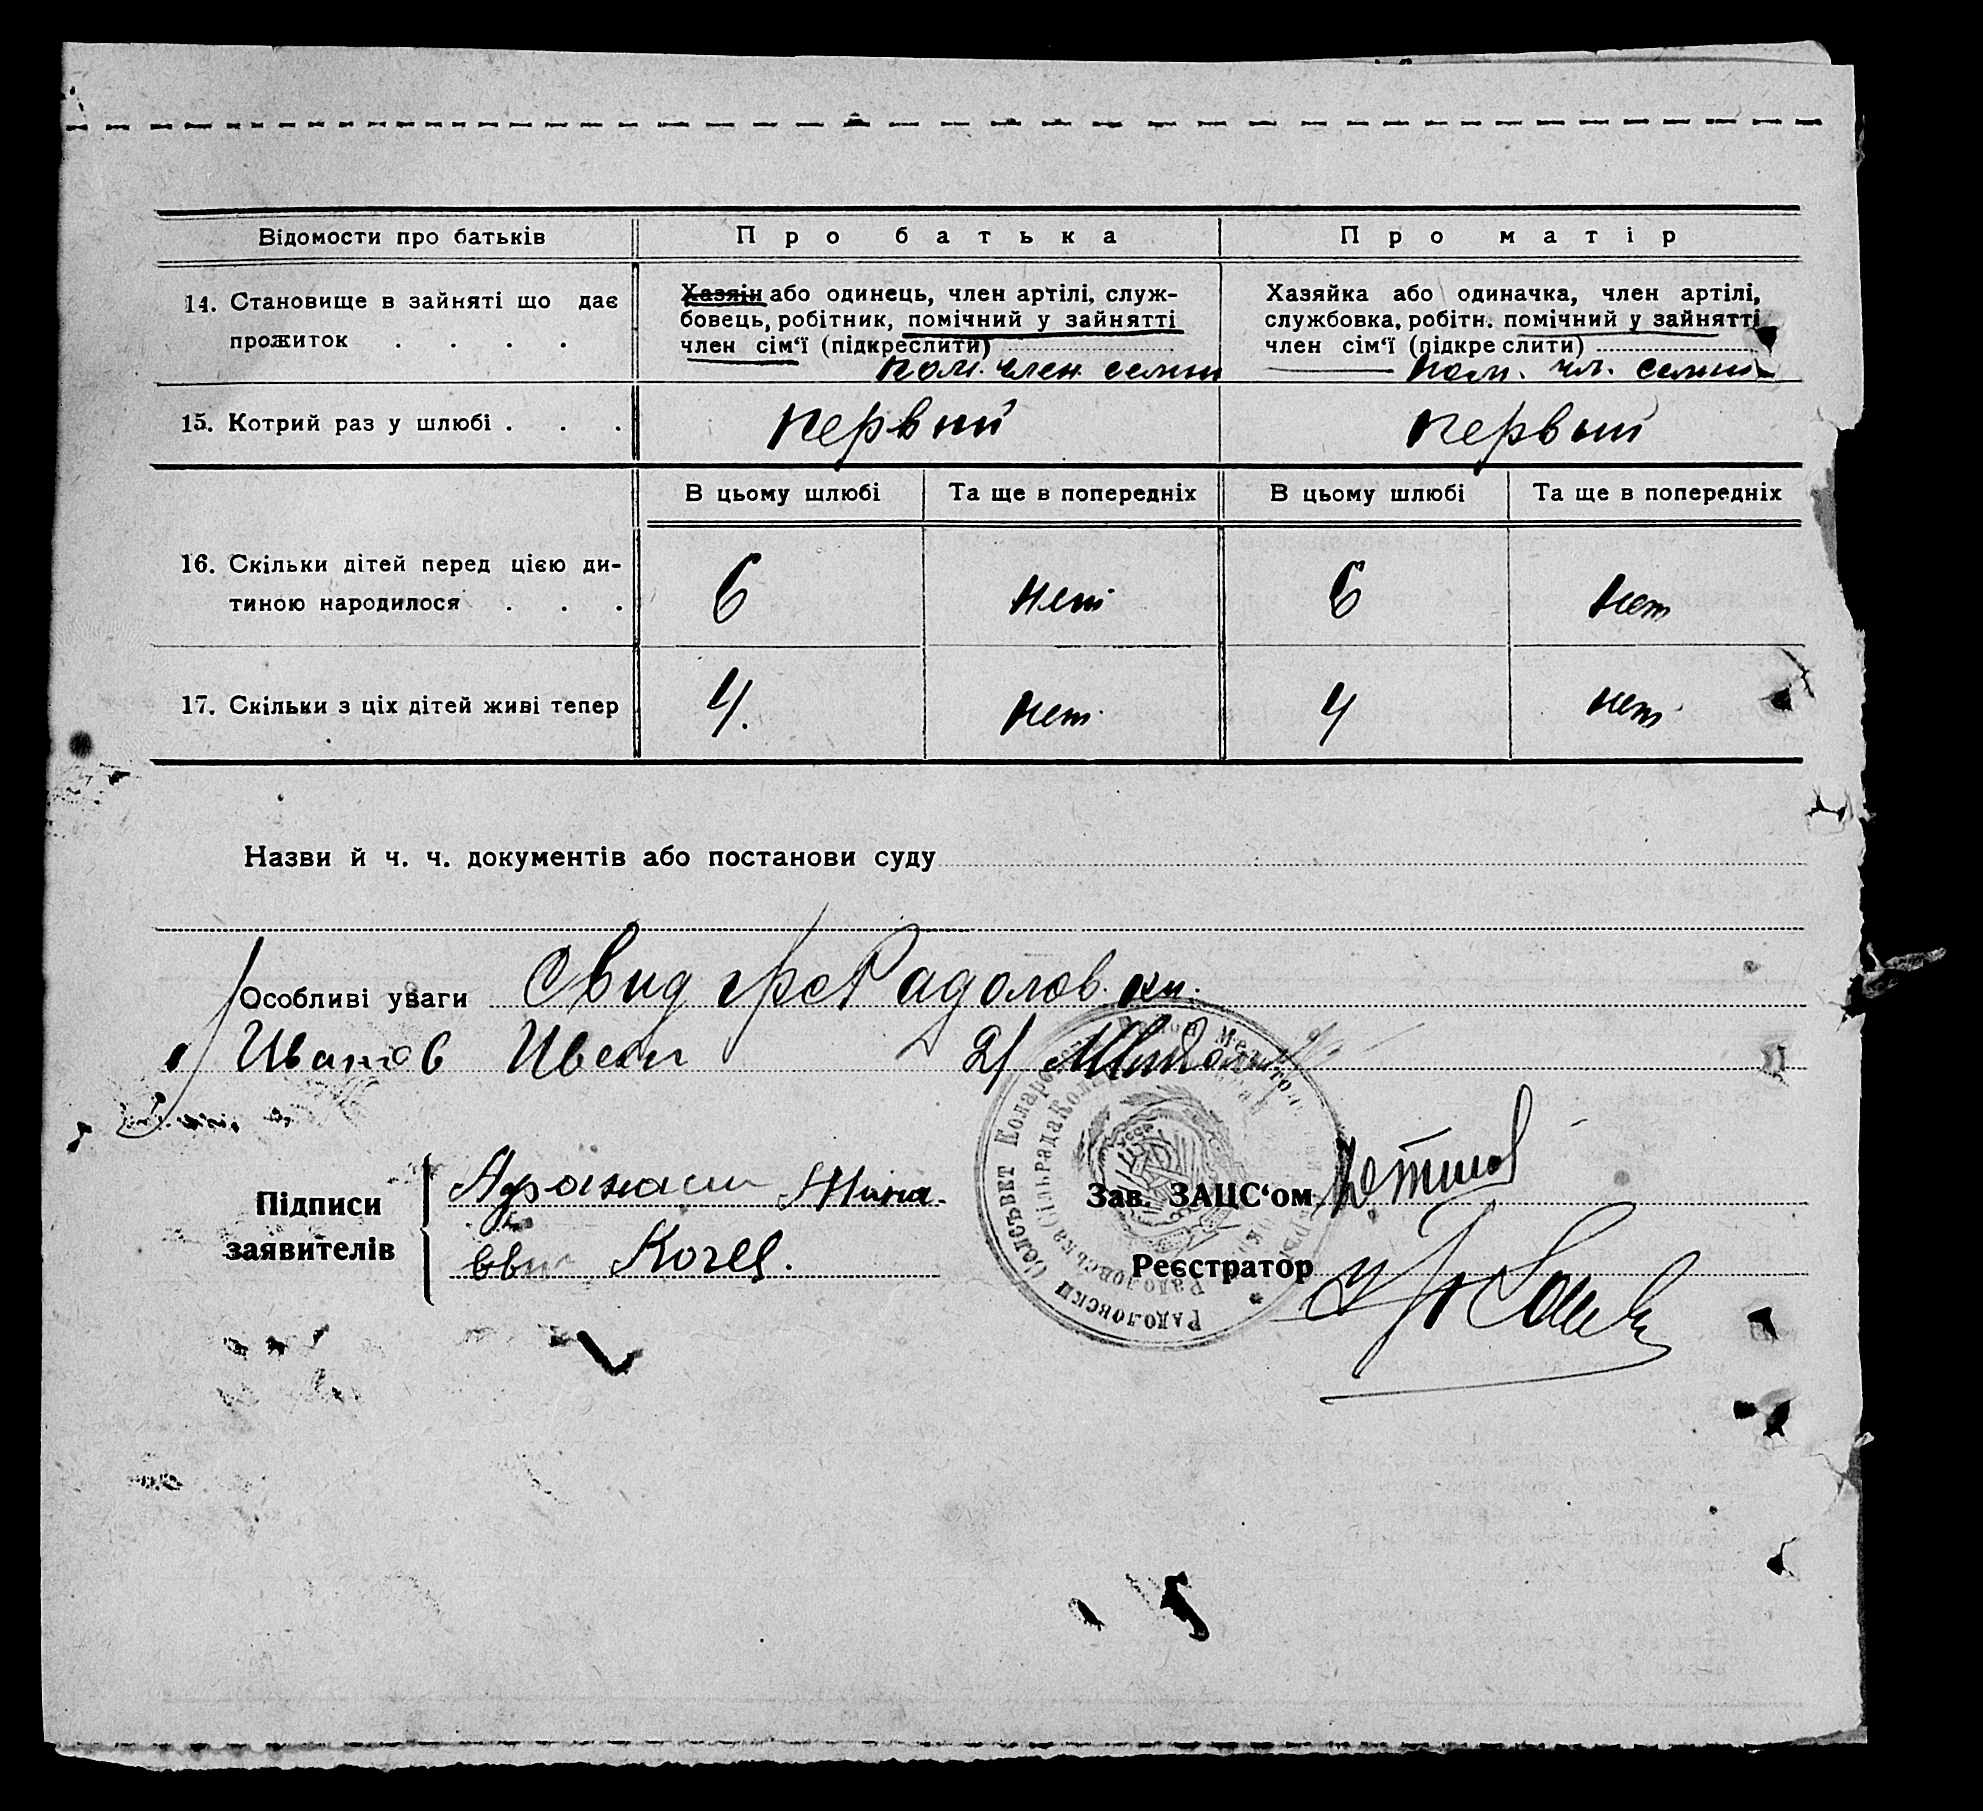 Відомости про батьків
Про батька
Про матір
14. Становище в зайняті що дає
прожиток . . . .
Хазяін або одинець, член артілі, служ-
бовець, робітник, помічний у зайнятті
член сім‘ї (підкреслити)
пом. член семьи
Хазяйка або одиначка, член артілі,
службовка, робітн. помічний у зайнятті
член сім‘ї (підкреслити)
пом. чл. семьи
15. Котрий раз у шлюбі . . .
первый
первый
В цьому шлюбі
Та ще в попередніх
В цьому шлюбі
Та ще в попередніх
16. Скільки дітей перед цією ди-
тиною народилося . . .
6
нет
6
нет
17. Скільки з ціх дітей живі тепер
4.
нет
4
нет
Назви й ч. ч. документів або постанови суду
Особливі уваги Свид
Иванов 2/
Підписи
заявителів
Зав. ЗАЦС‘ом
Реєстратор
Радоловски Сельсвет
Сільрада
УССР